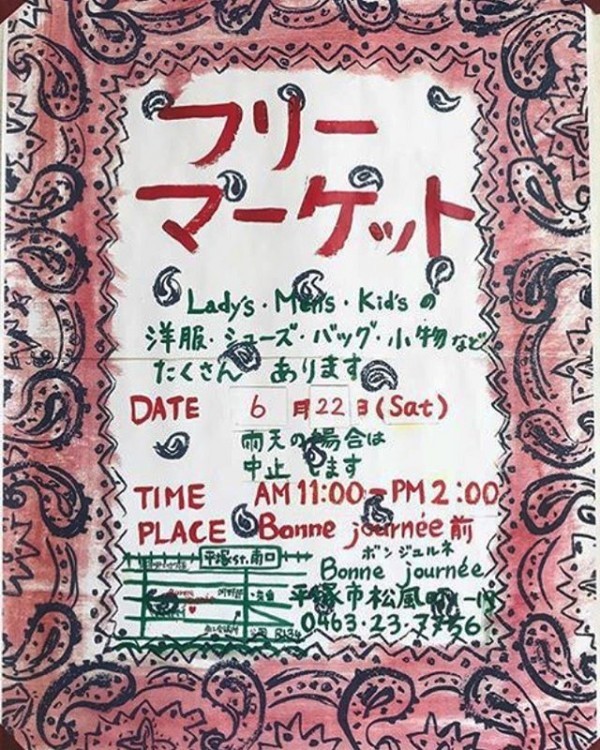 フリー
マーケット
Lady's・Men's・Kid'sの
洋服・シューズ・バッグ・小物など
たくさん あります
DATE 6月22日(Sat)
雨天の場合は
中止します
TIME AM 11:00-PM 2:00
PLACE Bonne journée前
ボンジュルネ
Bonne journée
平塚st.南口
平塚市松風町
0463・23・7756
R134